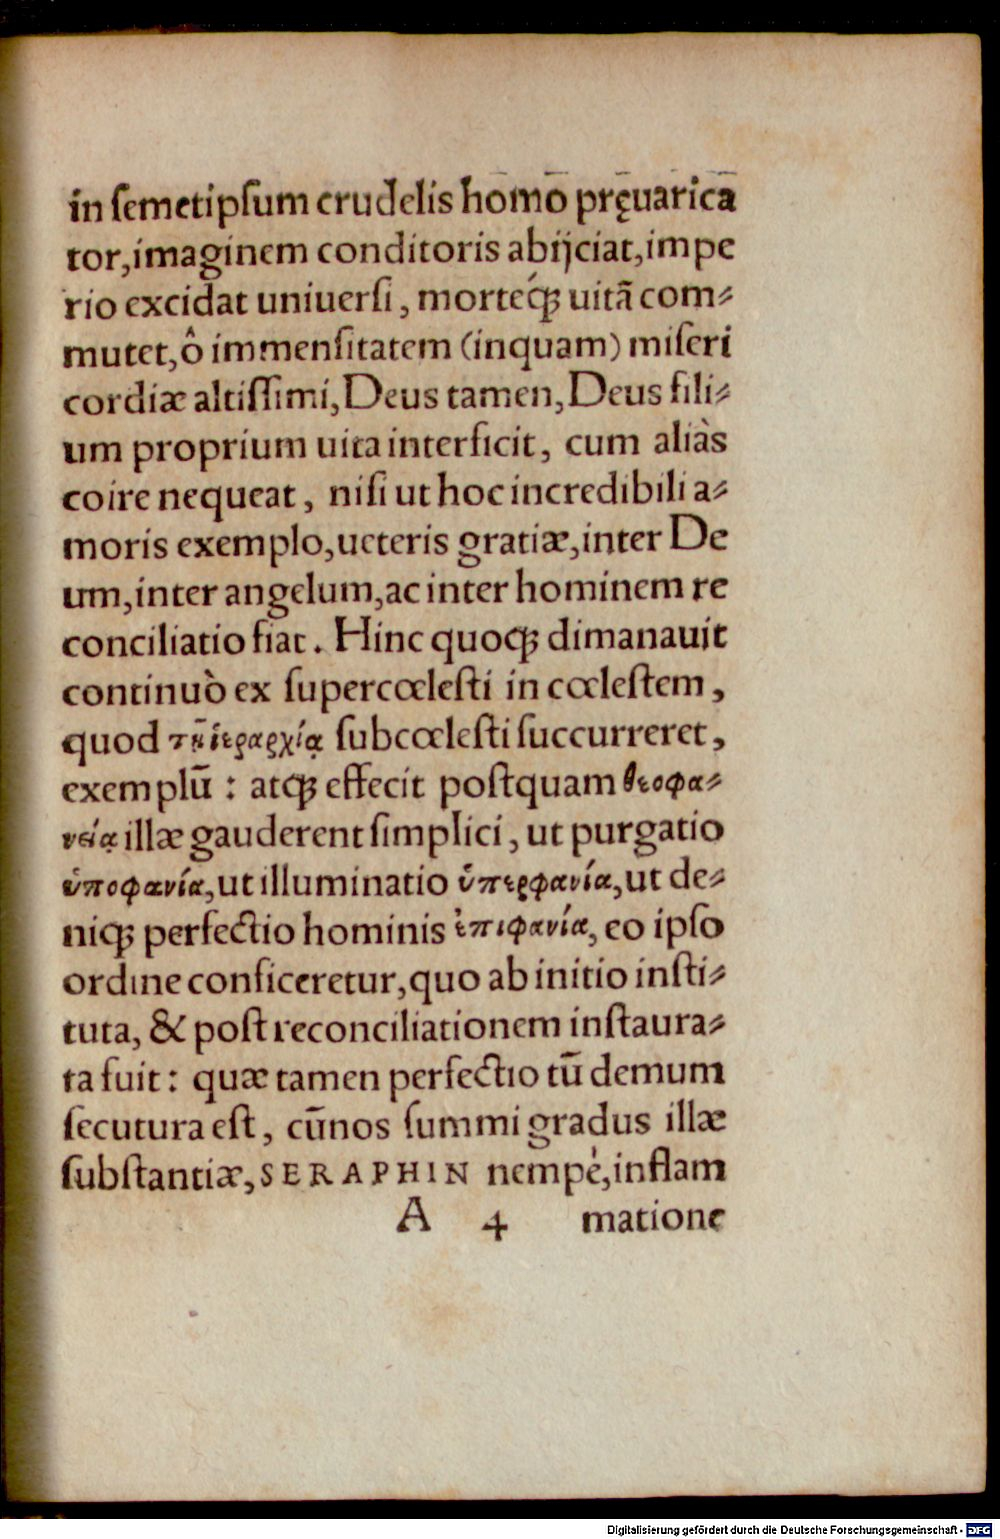 in ſemetipſum crudelis homo pręuarica
tor,imaginem conditoris abijciat,impe
rio excidat uniuerſi, morteq́; uitā com⸗
mutet,ô immenſitatem (inquam) miſeri
cordiæ altiſſimi,Deus tamen,Deus fili⸗
um proprium uita interficit, cum aliàs
coire nequeat, niſi ut hoc incredibili a⸗
moris exemplo,ueteris gratiæ,inter De
um,inter angelum,ac inter hominem re
conciliatio fiat. Hinc quoq; dimanauit
continuò ex ſupercœleſti in cœleſtem,
quod τῇ ἱεραρχίᾳ ſubcœleſti ſuccurreret,
exemplū: atq; effecit poſtquam θεοφα⸗
νείᾳ illæ gauderent ſimplici, ut purgatio
ὑποφανία,ut illuminatio ὑπερφανία,ut de⸗
niq; perfectio hominis ἐπιφανία, eo ipſo
ordine conficeretur,quo ab initio inſti⸗
tuta, & poſt reconciliationem inſtaura⸗
ta fuit: quæ tamen perfectio tū demum
ſecutura eſt, cū nos ſummi gradus illæ
ſubſtantiæ,SERAPHIN nempè,inflam
A 4 matione
Digitalisierung gefördert durch die Deutsche Forschungsgemeinschaft - DFG